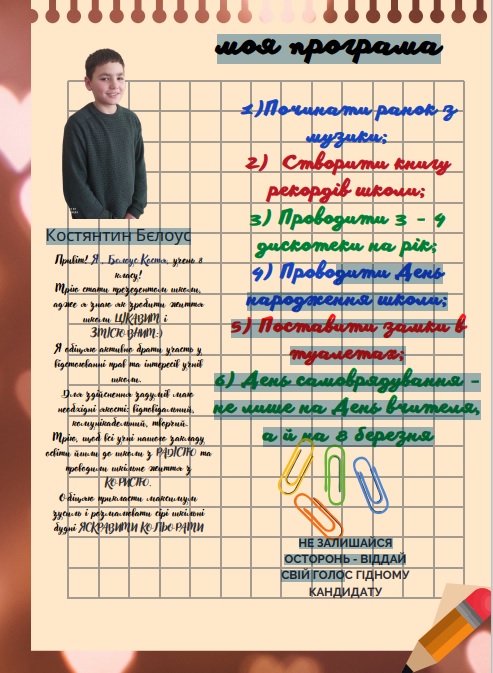 моя програма
1)Починати ранок з
музики;
2) Створити книгу
рекордів школи;
3) Проводити 3 - 4
дискотеки на рік;
4) Проводити День
народження школи;
5) Поставити замки в
туалетах;
6) День самоврядування -
не лише на День вчителя,
а й на 8 березня
Костянтин Бєлоус
Привіт! Я , Бєлоус Костя, учень 8
класу!
Мрію стати президентом школи,
адже я знаю як зробити життя
школи ЦІКАВИМ і
ЗМІСТОВНИМ:)
Я обіцяю активно брати участь у
відстоюванні прав та інтересів учнів
школи.
Для здійснення задумів маю
необхідні якості: відповідальний,
комунікабельний, творчий.
Мрію, щоб всі учні нашого закладу
освіти йшли до школи з РАДІСТЮ та
проводили шкільне життя з
КОРИСТЮ.
Обіцяю прикласти максимум
зусиль і розмалювати сірі шкільні
будні ЯСКРАВИМИ КОЛЬОРАМИ
НЕ ЗАЛИШАЙСЯ
ОСТОРОНЬ - ВІДДАЙ
СВІЙ ГОЛОС ГІДНОМУ
КАНДИДАТУ